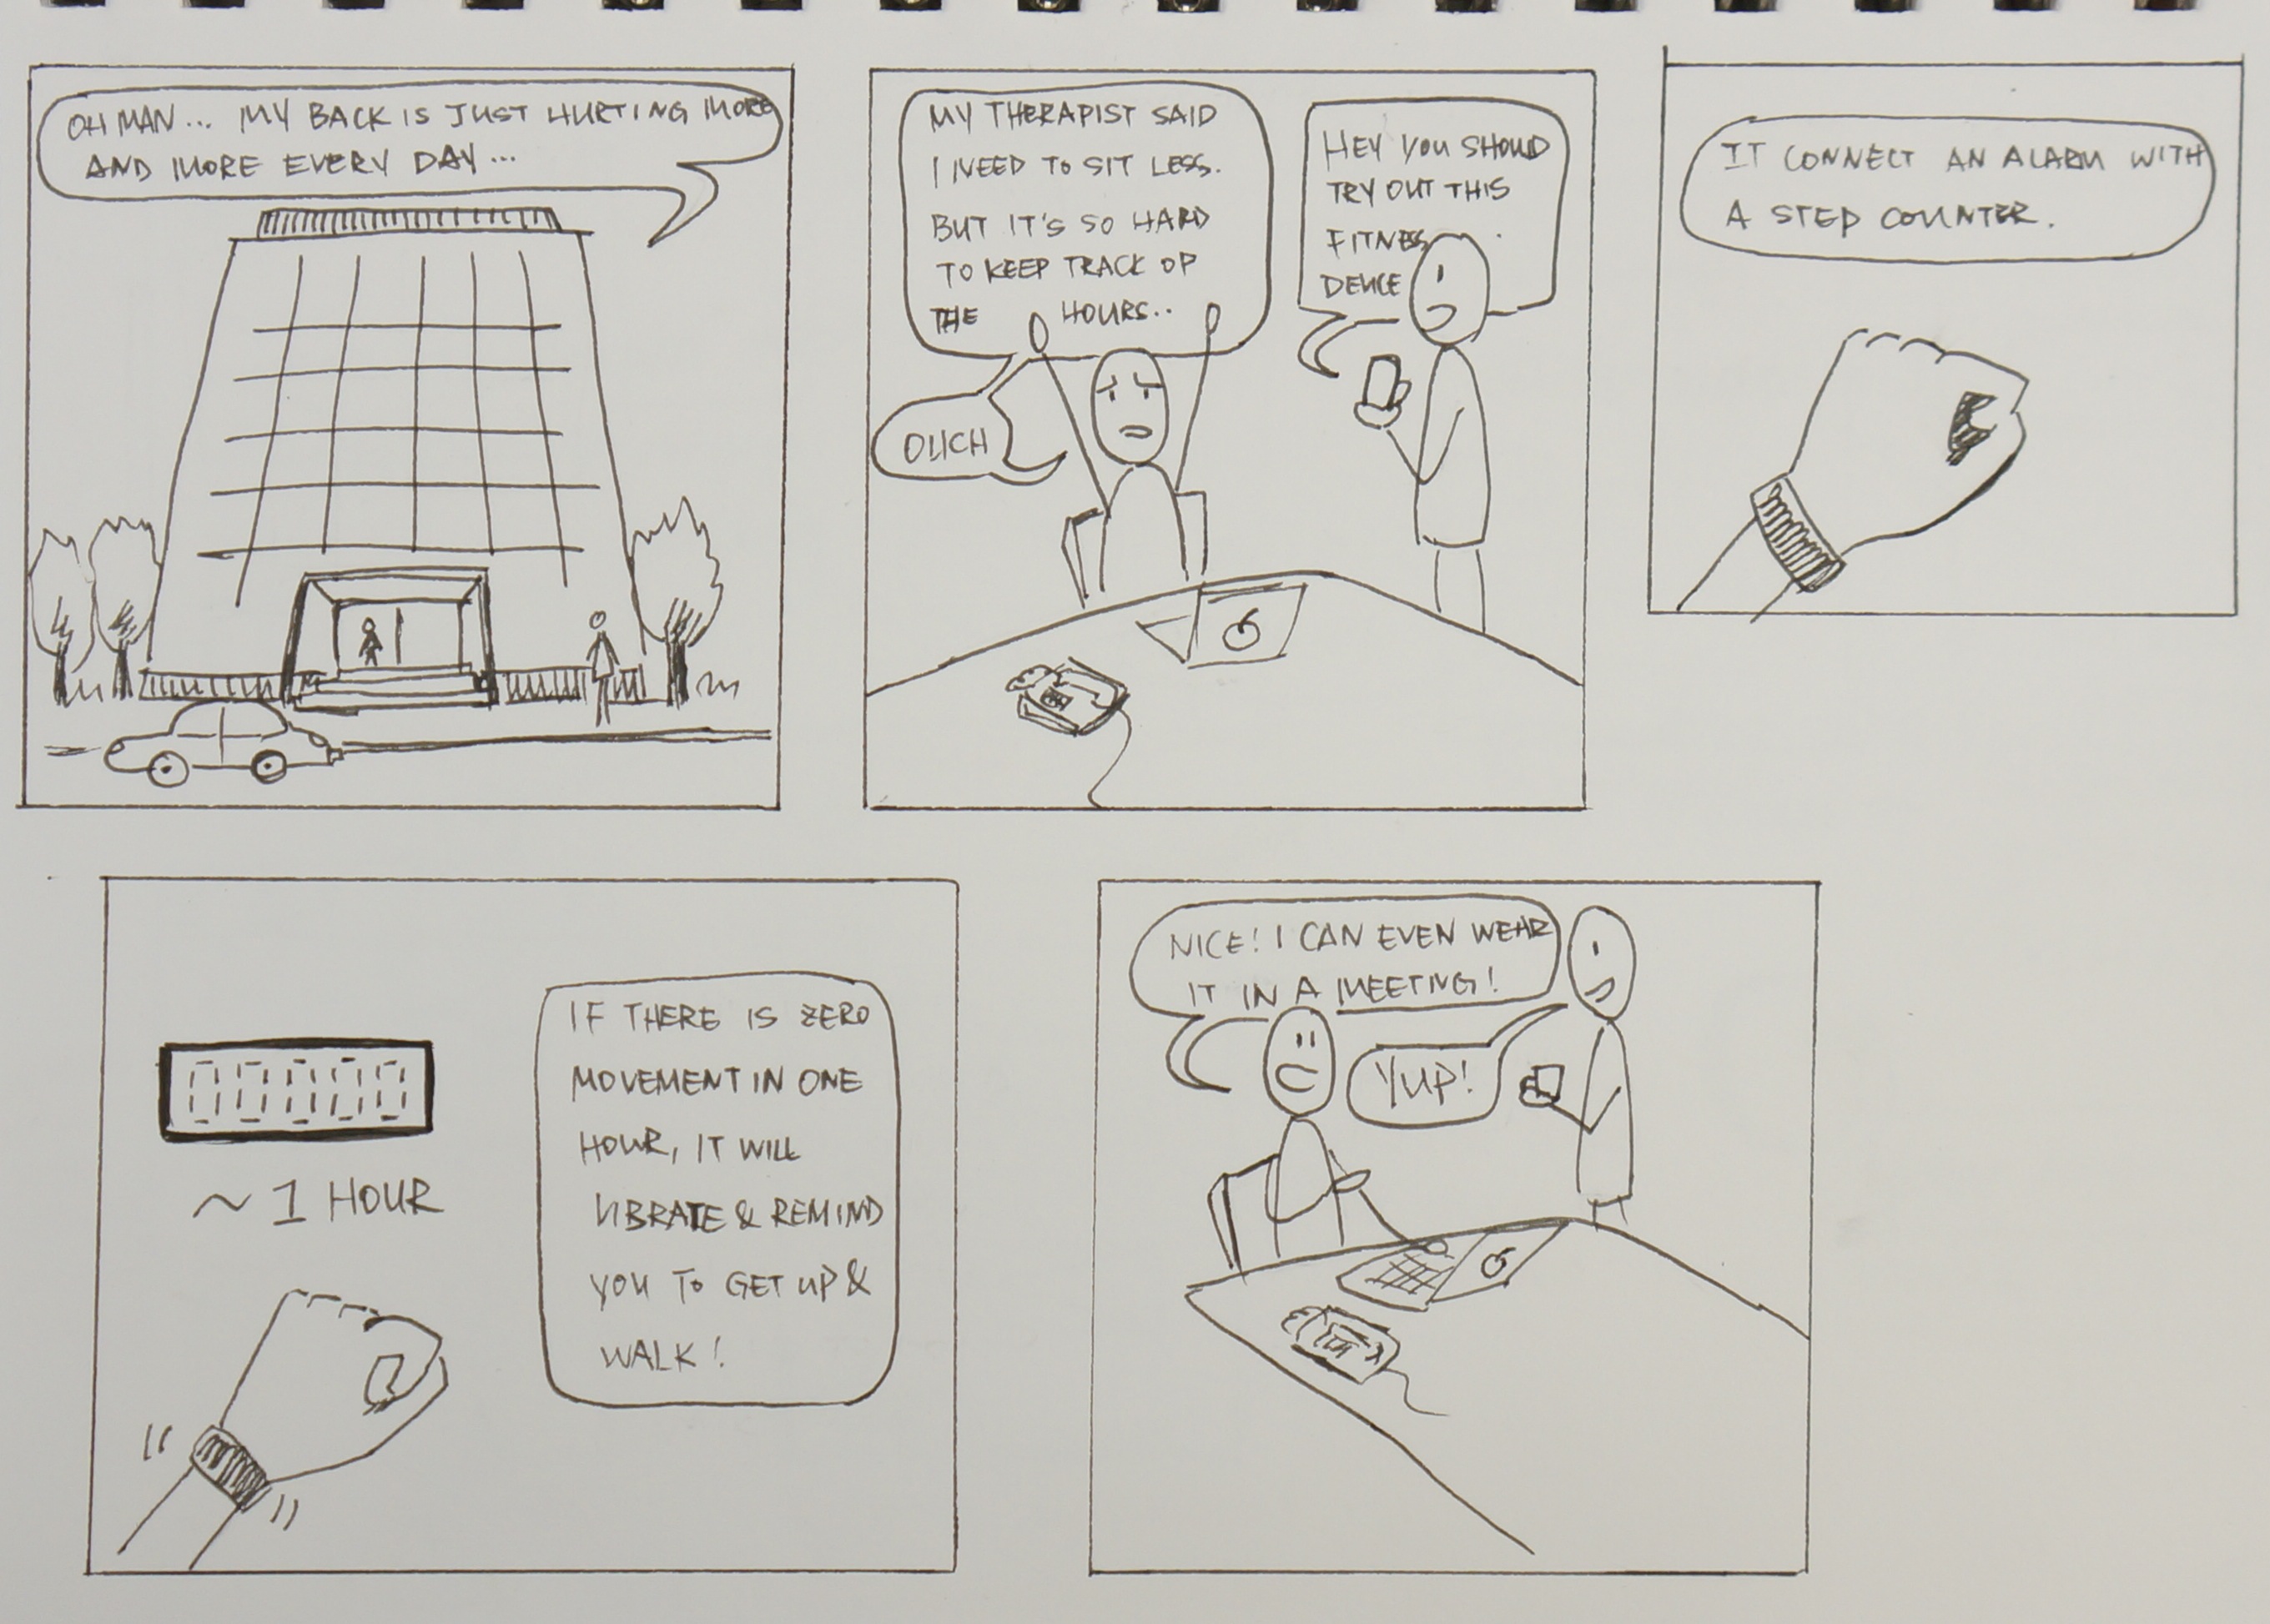 OH MAN... MY BACK IS JUST HURTING MORE
AND MORE EVERY DAY...
MY THERAPIST SAID
I NEED TO SIT LESS.
BUT IT'S SO HARD
TO KEEP TRACK OF
THE HOURS..
OUCH
HEY YOU SHOULD
TRY OUT THIS
FITNES
DEVICE
IT CONNECT AN ALARM WITH
A STEP COUNTER.
00000
~ 1 HOUR
IF THERE IS ZERO
MOVEMENT IN ONE
HOUR, IT WILL
VIBRATE & REMIND
YOU TO GET UP &
WALK!
NICE! I CAN EVEN WEAR
IT IN A MEETING!
YUP!